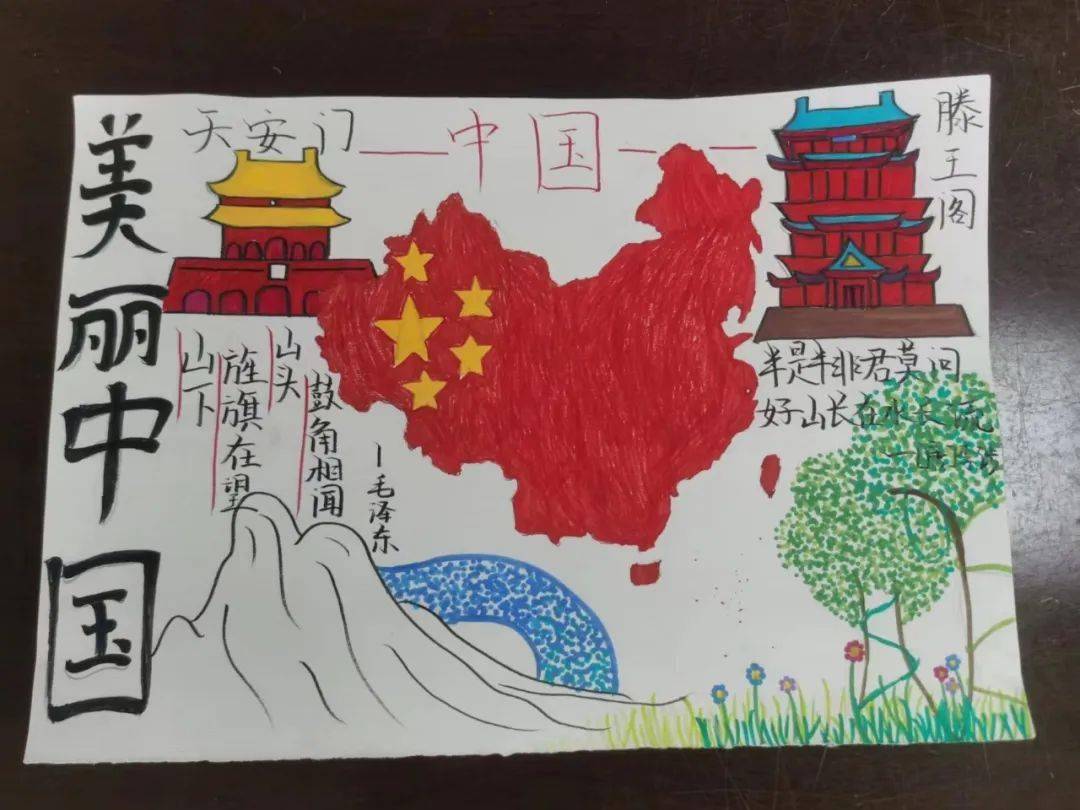 美丽中国
天安门
中国
滕王阁
山下
旌旗在望
山头
鼓角相闻
—毛泽东
半是半非君莫问
好山长在水长流